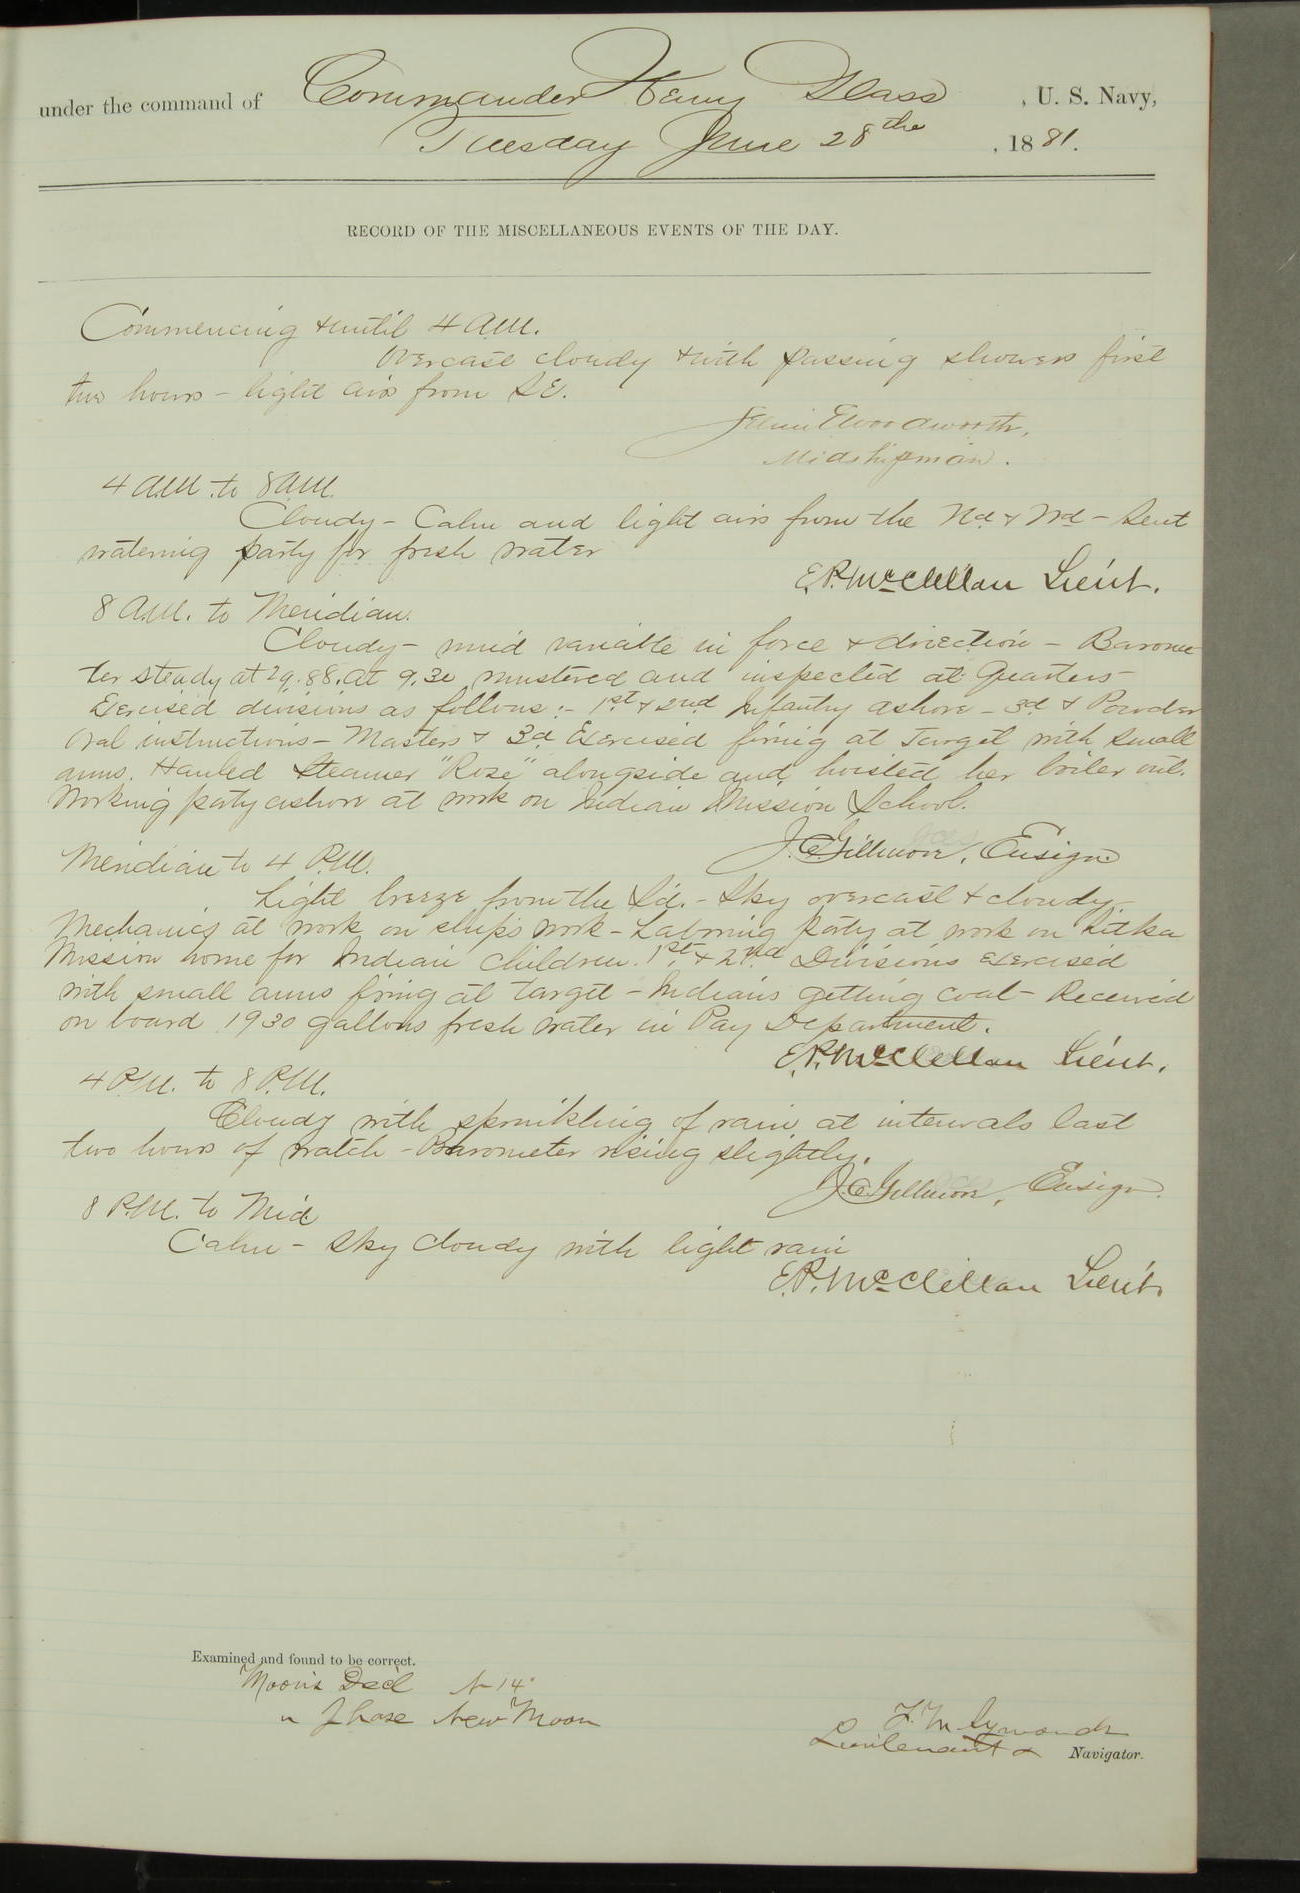 under the command of Commander Henry Glass , U. S. Navy,
Tuesday June 28the , 1881.
RECORD OF THE MISCELLANEOUS EVENTS OF THE DAY.
Commencing & until 4 A.M.
Overcast cloudy & with passing showers first
two hours - light airs from SE.
Woodworth,
Midshipman.
4 A.M. to 8 A.M.
Cloudy - Calm and light airs from the Nd & Wd - Sent
watering party for fresh water
E.P. McClellan Lieut.
8 A.M. to Meridian.
Cloudy - wind variable in force & direction - Barome-
ter steady at 29.88. At 9.30 mustered and inspected at Quarters -
Exercised divisions as follows :- 1st & 2nd Infantry ashore - 3d & Powder
Oral instructions - Masters & 3d Exercised firing at Target with small
arms. Hauled Steamer "Rose" alongside and hoisted her boiler out.
Working party ashore at work on Indian Mission School.
J.C. Gillmore, Ensign
Meridian to 4 P.M.
Light breeze from the Sd. - Sky overcast & cloudy -
Mechanics at work on ship's work - Laboring party at work on Sitka
Mission home for Indian Children. 1st & 2nd Divisions exercised
with small arms firing at target - Indians getting coal - Received
on board 1930 gallons fresh water in Pay Department.
E.P. McClellan Lieut.
4 P.M. to 8 P.M.
Cloudy with sprinkling of rain at intervals last
two hours of watch - Barometer rising slightly.
J.C. Gillmore, Ensign.
8 P.M. to Mid
Calm - Sky cloudy with light rain
E.P. McClellan Lieut.
Examined and found to be correct.
Moon's Decl N 14°
" Phase New Moon
F. M. Symonds
Lieutenant & Navigator.